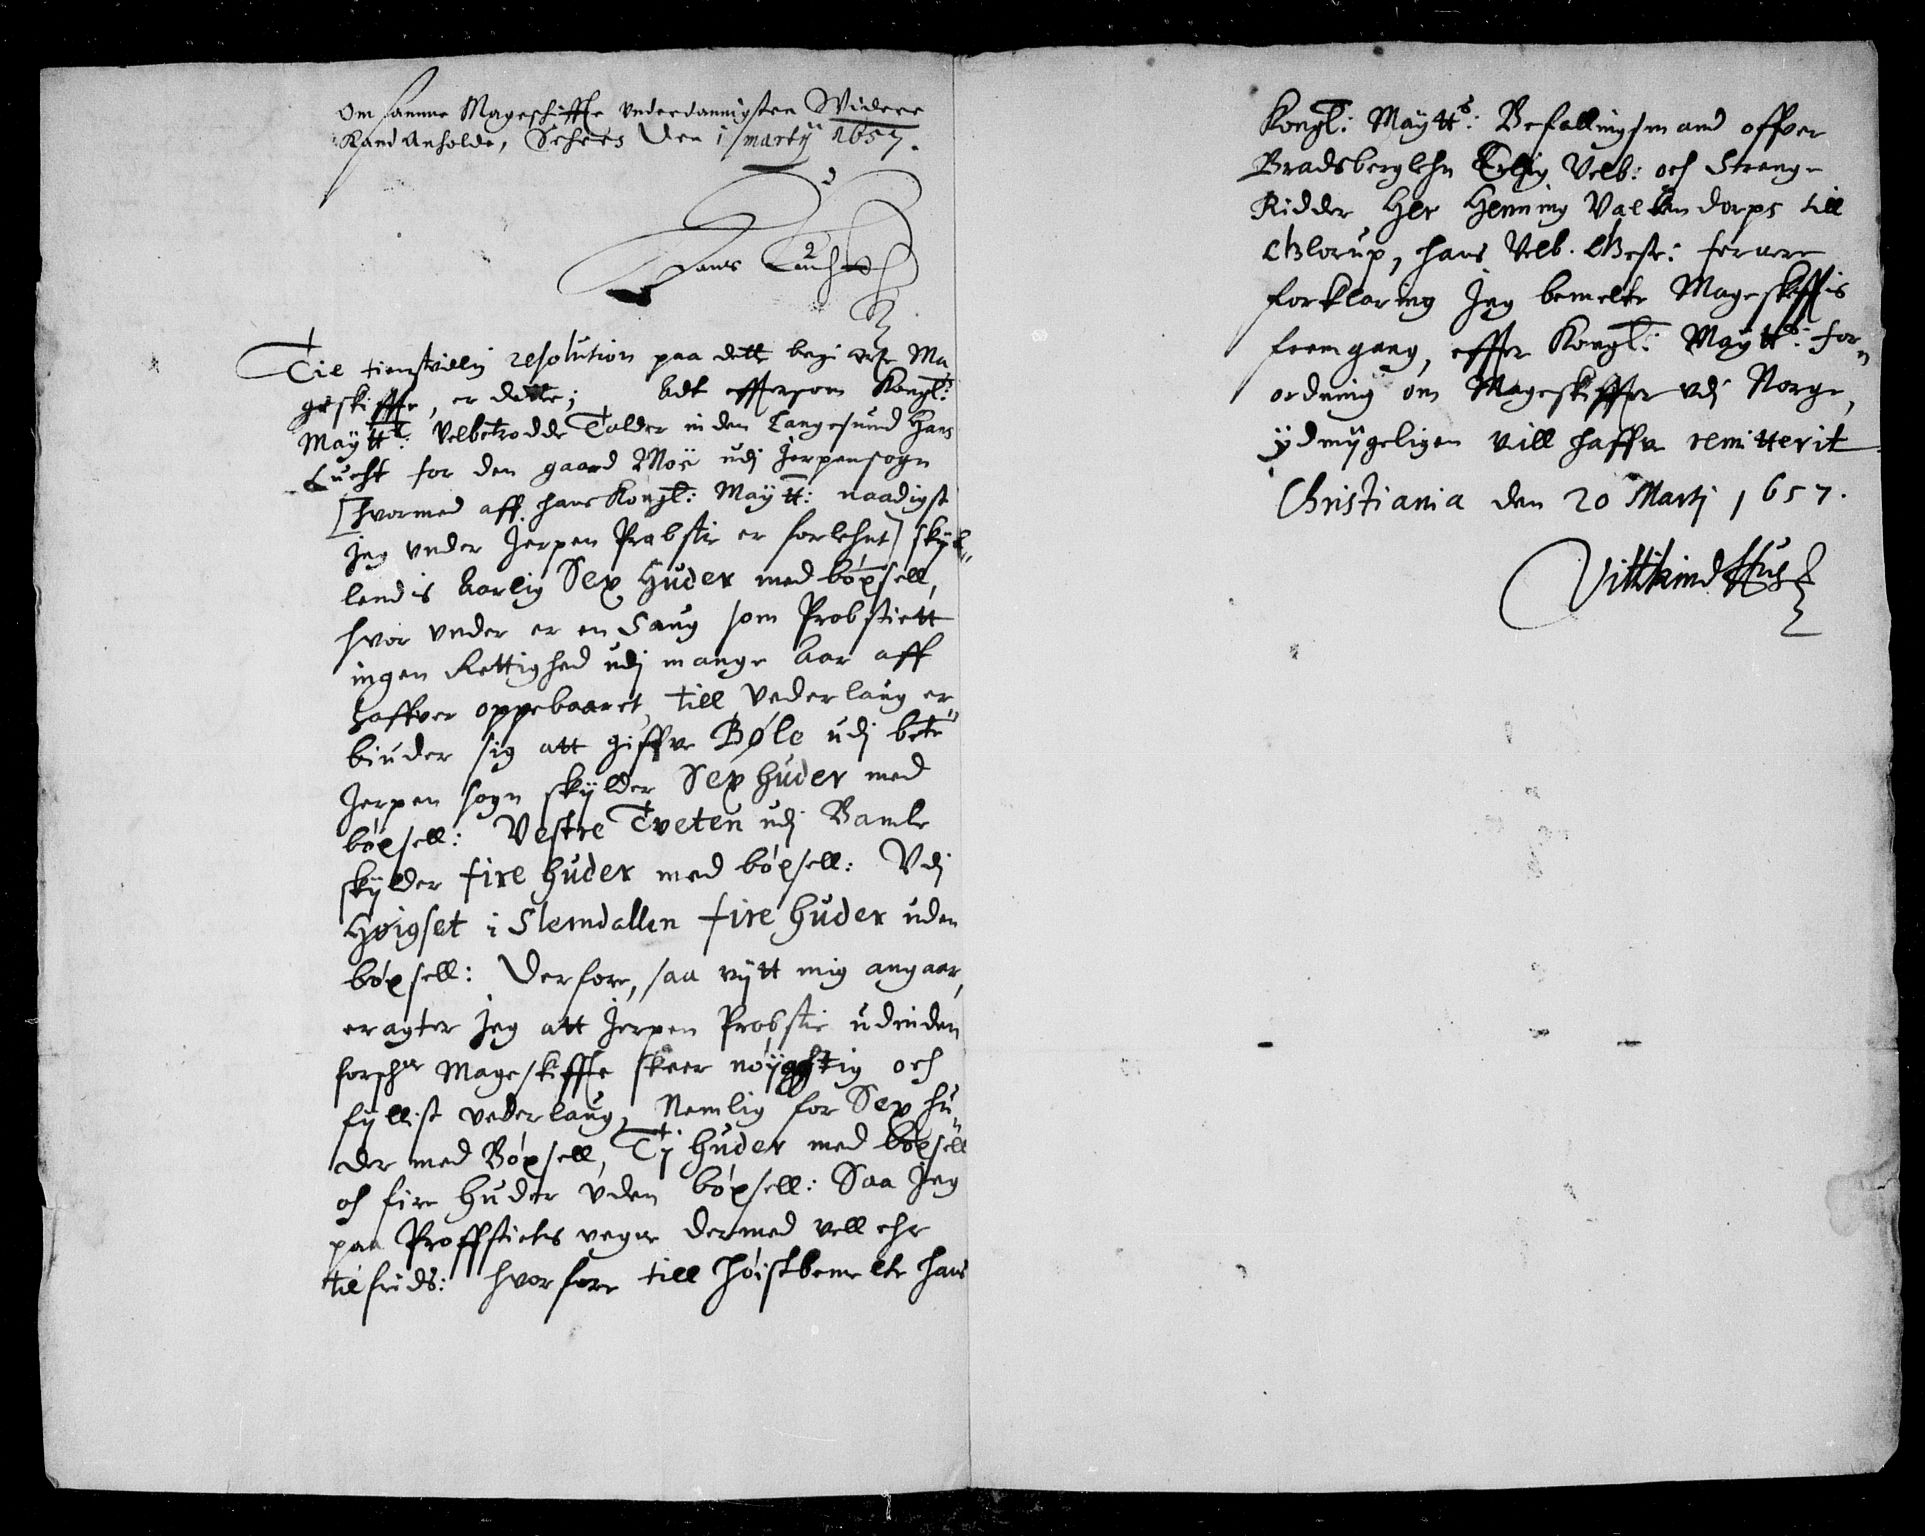 Om samme Mageschiffte Underdannigsten Widere
Kand Anholde, Schees Den 1 marty 1657.
Hans Lucht
Till tienstvillig resolution paa dette begierte Ma,
geskiffte, er dette; Adt effttersom Kongl:
Maÿttz: Velbetrodde Tolder inden Langesund Hans
Lucht for den gaard Moe udj Jerpensogn
[hvormed aff hans Kongl: Maÿtt: naadigst
Jeg under Jerpen Probstie er forlehnt] skÿl„
lendis Aarlig Sex Huder med bøxsell,
hvor under er en Saug som Probstiett
ingen Rettighed udj mange Aar aff
haffver oppebaaret, till Vederlaug er„
biuder sig att giffve Bøle udj bete
Jerpen sogn skÿlder Sex huder med
bøxsell: Vestre Tveten udj Bamle
skÿlder fire huder med bøxsell: Vdj
Høigset i Slemdallen fire huder uden
bøxsell: Derfore, saa vitt mig angaar,
eragter Jeg att Jerpen Probstie udinden
forschne Mageskiffte skeer nøÿachtig och
fyllist vederlaug, Nemlig for Sex hu„
der med Bøxsell, Tj huder med bøxsell
och fire huder uden bøxsell: Saa Jeg
paa Proffstiets vegne dermed vell ehr
tilfreds: hvorfore till høistbemelte hans
Kongl: Maÿttz: Befallingsmand offver
Bradsberglehn Erlig Velb: och Strenge
Ridder Her Henning Valkendorps till
Glorup, hans Velb. Gestr: fernere
forklaring Jeg bemelte Mageskifftis
fremgang, effter Kongl: Maÿttz: for„
ordning om Mageskiffter udj Norge,
ÿdmÿgeligen vill haffve remitterit
Christiania den 20 Martj 1657.
Vittikind Hus